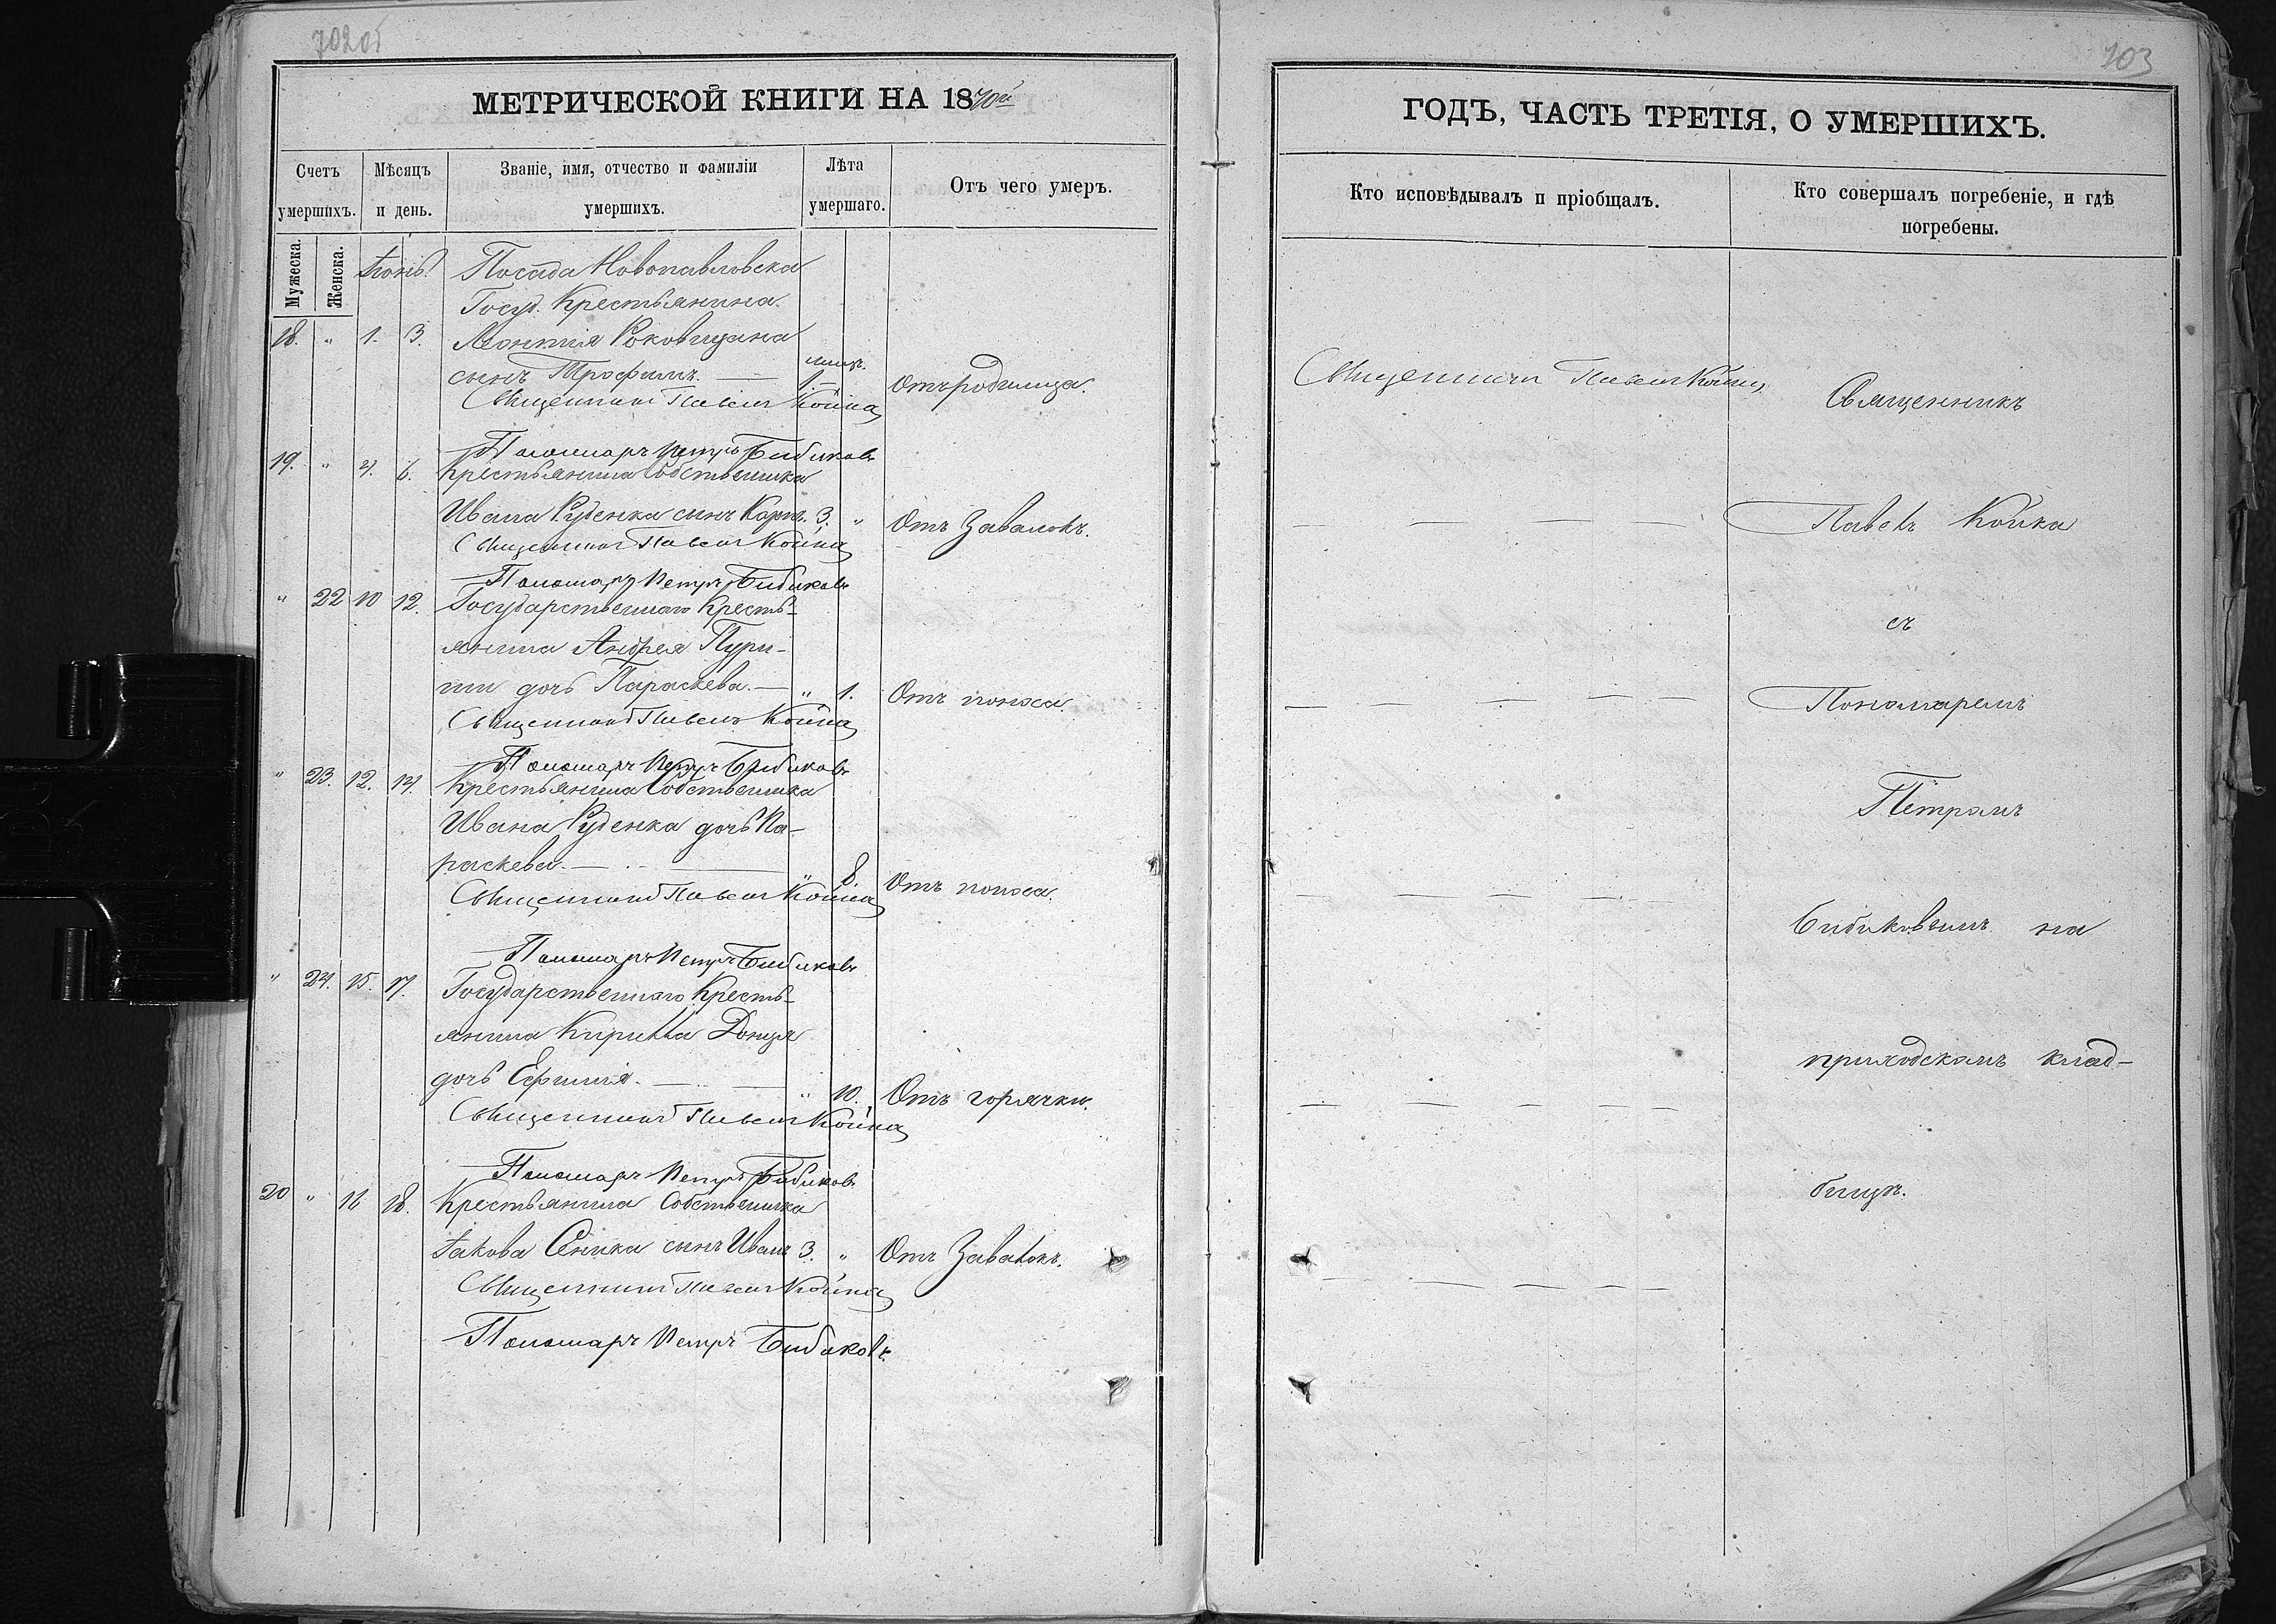 702об
МЕТРИЧЕСКОЙ КНИГИ НА 1870й
Счетъ умершихъ.
Мѣсяцъ и день.
Званіе, имя, отчество и фамиліи умершихъ.
Лѣта умершаго.
Отъ чего умеръ.
Мужеска.
Женска.
Іюнь.
Посада Новопавловска
Госуд. Крестьянина
18. " 1. 3.
сынъ Трофимъ. — 1. — Отъ родимца.
Священникъ Павелъ Койка
Пономарь Петръ Бибиковъ
19. " 4. 6. Крестьянина Собственника
Ивана Руденка сынъ Карпъ. 3. " Отъ Завалокъ.
Священникъ Павелъ Койка
Пономарь Петръ Бибиковъ
" 22 10 12. Государственнаго Кресть-
янина Андрея
дочь Параскева. — " 1. Отъ поноса.
Священникъ Павелъ Койка
Пономарь Петръ Бибиковъ
" 23. 12. 14. Крестьянина Собственника
Ивана Руденка дочь Па-
раскева. — " 8. Отъ поноса.
Священникъ Павелъ Койка
Пономарь Петръ Бибиковъ
" 24. 15. 17. Государственнаго Кресть-
янина Кирилла Донця
дочь Ефимія. — " 10. Отъ горячки.
Священникъ Павелъ Койка
Пономарь Петръ Бибиковъ
20 " 16. 18. Крестьянина Собственника
Іакова Сеника сынъ Иванъ 3. " Отъ Завалокъ.
Священникъ Павелъ Койка
Пономарь Петръ Бибиковъ
703
ГОДЪ, ЧАСТЬ ТРЕТІЯ, О УМЕРШИХЪ.
Кто исповѣдывалъ и пріобщалъ.
Кто совершалъ погребеніе, и гдѣ
погребены.
Священникъ Павелъ Койка
Священникъ
Павелъ Койка
съ
Пономаремъ
Петромъ
Бибиковымъ на
приходскомъ клад-
бищѣ.